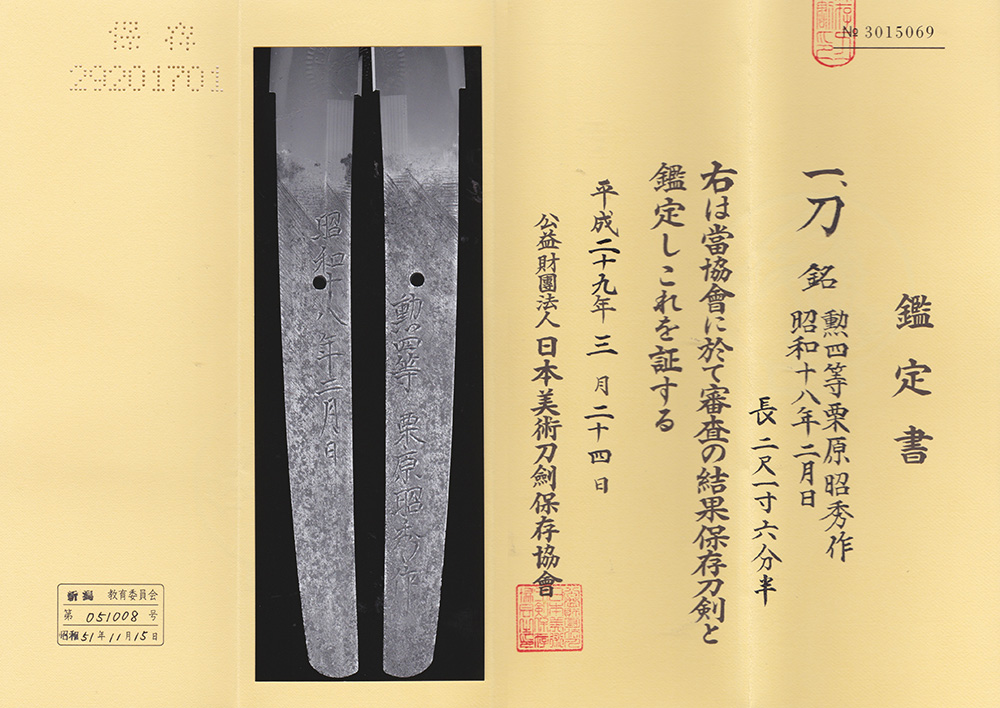 № 3015069
鑑定書
一、刀 銘 勲四等栗原昭秀作
昭和十八年二月日
長 二尺一寸六分半
右は當協會に於て審査の結果保存刀剣と
鑑定しこれを証する
平成二十九年 三 月 二十四 日
公益財團法人 日本美術刀劍保存協會
勳四等 栗原昭秀作
昭和十八年二月日
保存
29201701
新潟 教育委員会
第 051008 号
昭和 51 年 11 月 15 日